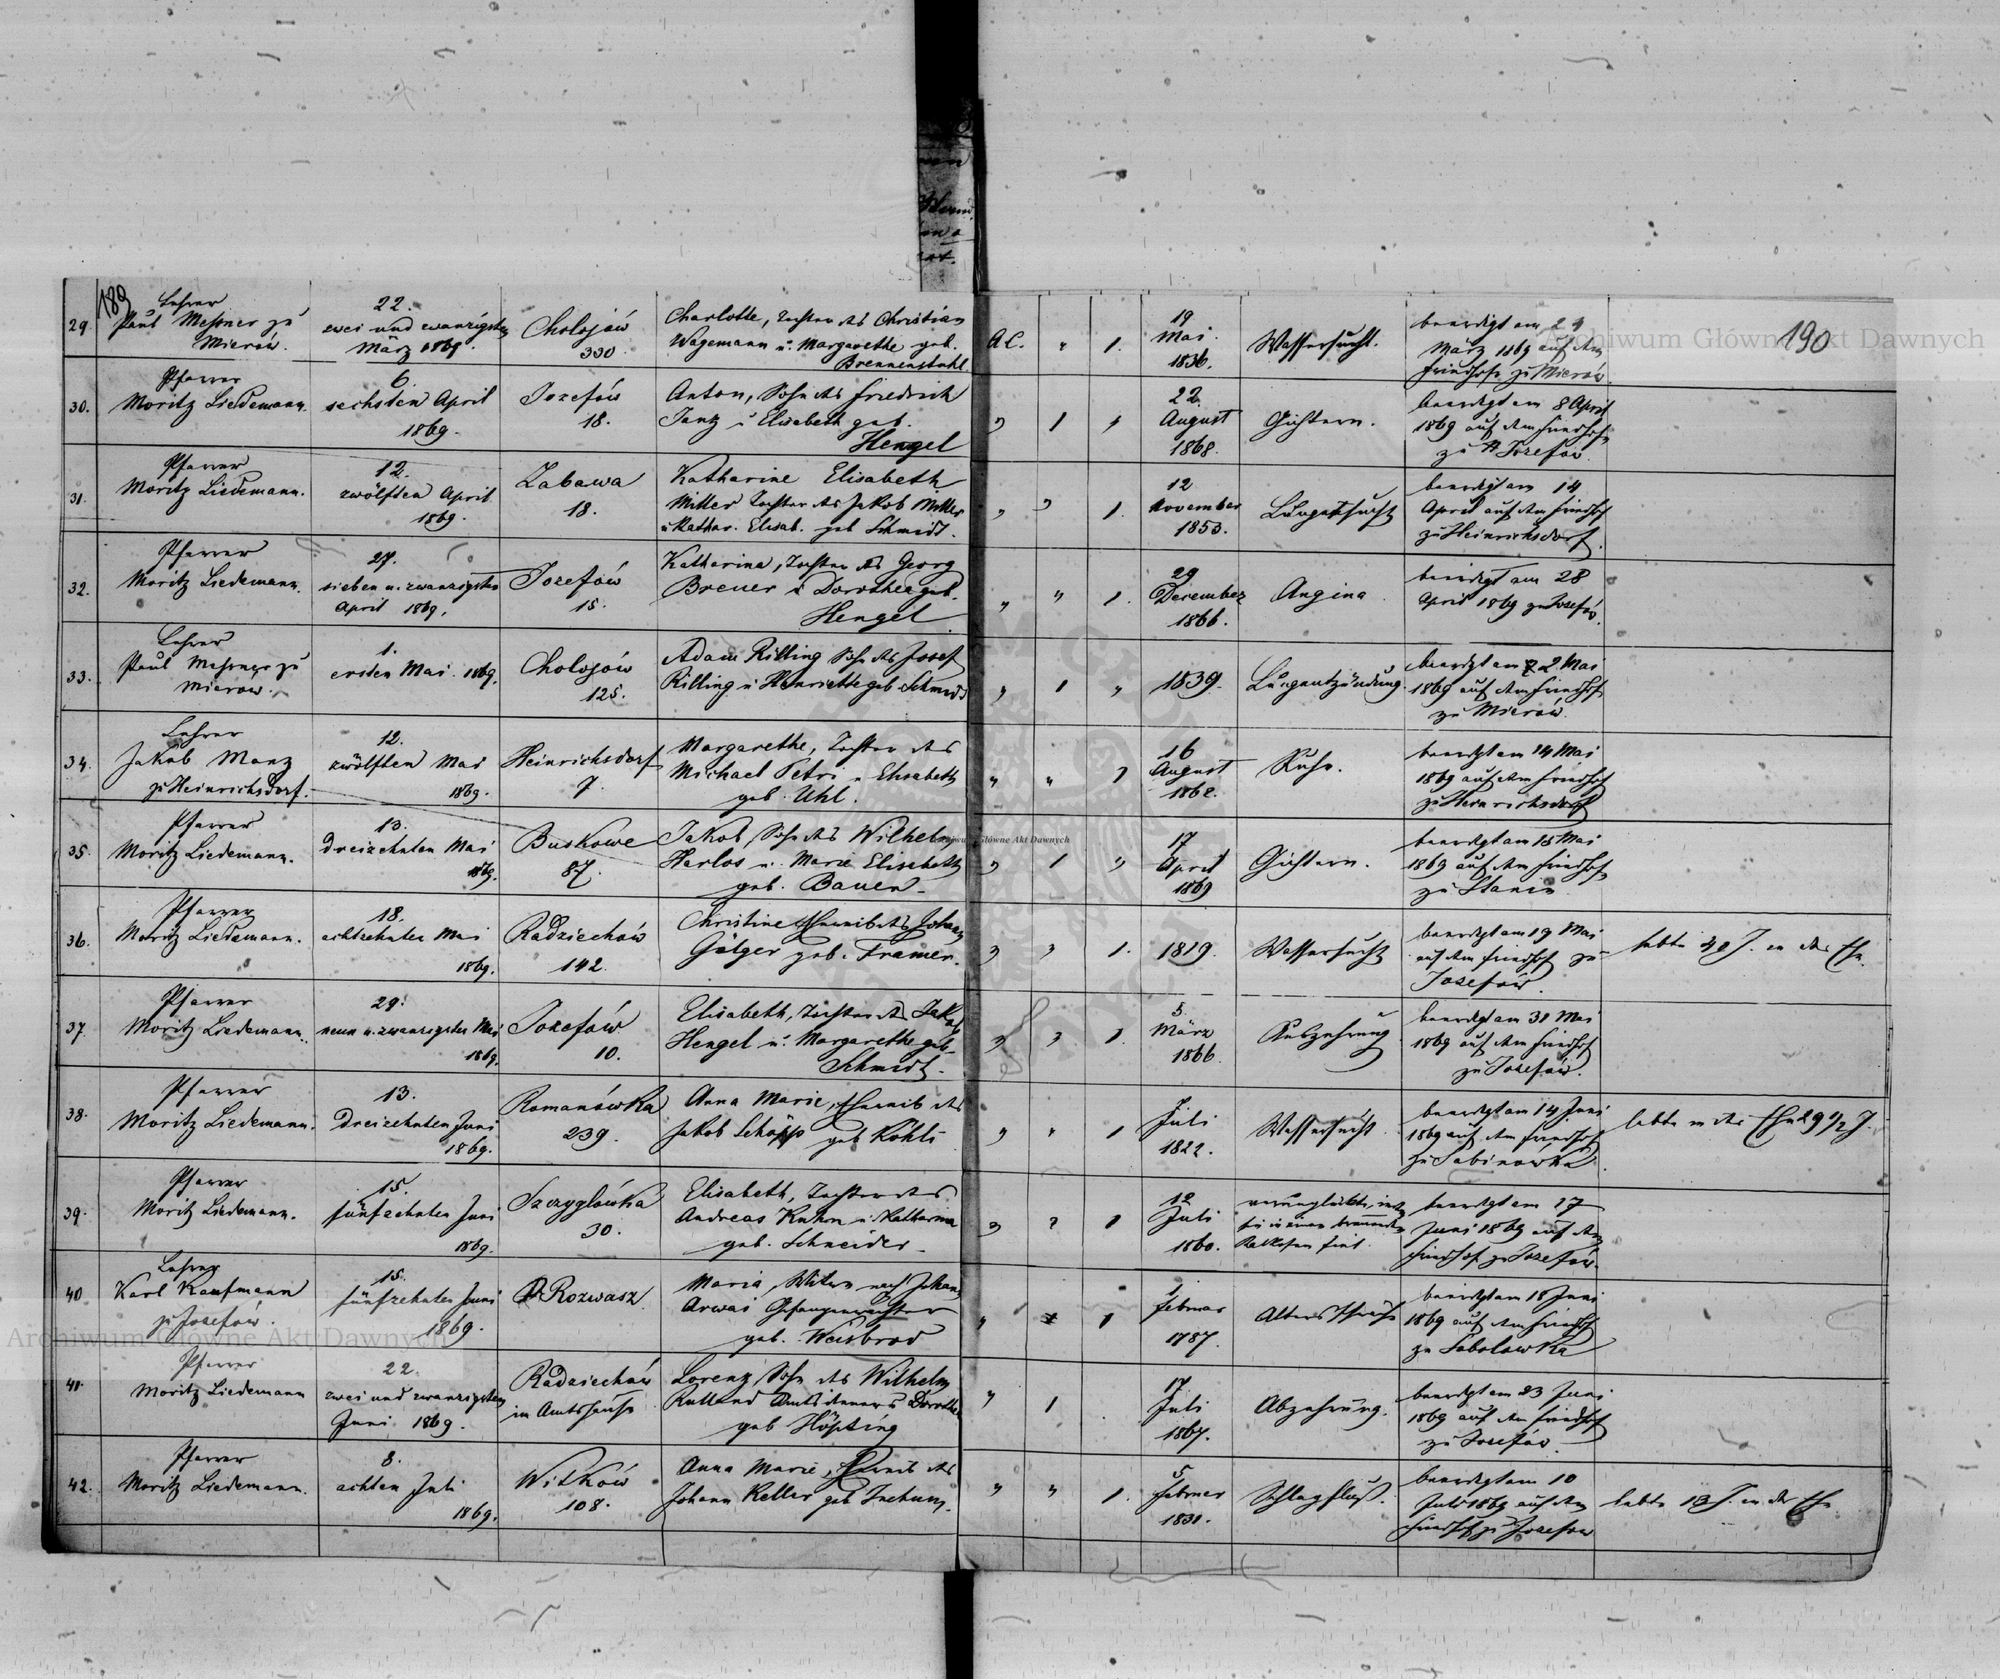 189
190
29.
Lehrer
Paul Messner zu
Mierów.
22.
zwei und zwanzigsten
März 1869.
Cholojów
330.
Charlotte, Tochter des Christian
Wagemann u. Margarethe geb.
Brennenstuhl
A.C. " 1.
19
Mai.
1836.
Wassersucht.
beerdigt am 24
März 1869 auf dem
Friedhofe zu Mierów.
30.
Pfarrer
Moritz Liedemann.
6.
sechsten April
1869.
Jozefów
18.
Anton, Sohn des Friedrich
Janz u Elisabeth geb.
Hengel
" 1 "
22.
August
1868.
Gichtern.
beerdigt am 8 April
1869 auf dem Friedhofe
zu Jozefów.
31.
Pfarrer
Moritz Liedemann.
12.
zwölften April
1869.
Zabawa
18.
Katharine Elisabeth
Mitter Tochter des Jakob Mitter
u Kathar. Elisab. geb Schmidt.
" " 1.
12
November
1853.
Lungensucht
beerdigt am 14
April auf dem Friedhof
zu Heinrichsdorf.
32.
Pfarrer
Moritz Liedemann.
27.
sieben u. zwanzigsten
April 1869.
Jozefów
15.
Katharina, Tochter des Georg
Breuer u Dorothea geb.
Hengel
" " 1.
29
Dezember
1866.
Angina
beerdigt am 28
April 1869 zu Josefów.
33.
Lehrer
Paul Messner zu
Mierów.
1.
ersten Mai 1869.
Cholojów
125.
Adam Rilling Sohn des Josef
Rilling u Henriette geb Schmidt
" 1 "
1839.
Lungentzündung.
beerdigt am 2 Mai
1869 auf dem Friedhof
zu Mierów.
34.
Lehrer
Jakob Manz
zu Heinrichsdorf.
12.
zwölften Mai
1869.
Heinrichsdorf
7.
Margarethe, Tochter des
Michael Petri u Elisabeth
geb. Uhl.
" " 1
16
August
1862.
Ruhr.
beerdigt am 14 Mai
1869 auf dem Friedhof
zu Heinrichsdorf
35.
Pfarrer
Moritz Liedemann.
13.
dreizehnten Mai
1869.
Buskowe
87.
Jakob, Sohn des Wilhelm
Harlos u. Marie Elisabeth
geb. Bauer.
" 1 "
17
April
1869
Gichtern.
beerdigt am 15 Mai
1869 auf dem Friedhofe
zu Stanin
36.
Pfarrer
Moritz Liedemann.
18.
achtzehnten Mai
1869.
Radziechów
142.
Christine Eheweib des Johann
Gölger geb. Framer.
" " 1.
1819.
Wassersucht
beerdigt am 19 Mai
auf dem Friedhof zu
Josefów.
lebte 32 J. in der Ehe.
37.
Pfarrer
Moritz Liedemann.
29.
neun u. zwanzigsten Mai
1869.
Jozefów
10.
Elisabeth, Tochter des Jakob
Hengel u. Margarethe geb.
Schmidt.
" " 1.
5.
März
1866.
Auszehrung
beerdigt am 31 Mai
1869 auf dem Friedhof
zu Josefów.
38.
Pfarrer
Moritz Liedemann.
13.
dreizehnten Juni
1869.
Romanówka
239.
Anna Marie, Eheweib des
Jakob Schöpp geb Köhli
" " 1
Juli
1822.
Wassersucht
beerdigt am 14 Juni
1869 auf dem Friedhof
zu Sabinówka.
lebte in der Ehe 29 1/2 J.
39.
Pfarrer
Moritz Liedemann.
15.
fünfzehnten Juni
1869.
Szczyglówka
30.
Elisabeth, Tochter des
Andreas Kuhn u. Katharina
geb. Schneider.
" " 1
12
Juli
1860.
verunglückte, indem
sie in einen brennenden
Kalkofen fiel.
beerdigt am 17
Juni 1869 auf dem
Friedhof zu Josefów.
40
Lehrer
Karl Kaufmann
zu Josefów.
15.
fünfzehnten Juni
1869.
Rozwasz
Maria, Witwe nach Johann
Arwai Gefangenwächter
geb. Weisbrod
" " 1
1
Februar
1787.
Altersschwäche
beerdigt am 18 Juni
1869 auf dem Friedhof
zu Sobolowka
41.
Pfarrer
Moritz Liedemann
22.
zwei und zwanzigsten
Juni 1869.
Radziechów
im Amtshause
Lorenz Sohn des Wilhelm
Rulland Amtsdiener u Dorothea
geb Höpting
" 1 .
17
Juli
1867.
Abzehrung.
beerdigt am 23 Juni
1869 auf dem Friedhof
zu Josefów.
42.
Pfarrer
Moritz Liedemann.
8.
achten Juli
1869.
Witków
108.
Anna Marie, Eheweib des
Johann Keller geb
" " 1.
5
Februar
1831.
Schlagfluß.
beerdigt am 10
Juli 1869 auf dem
Friedhof zu Josefow
lebte 13 J. in der Ehe
Archiwum Główne Akt Dawnych
Archiwum Główne Akt Dawnych